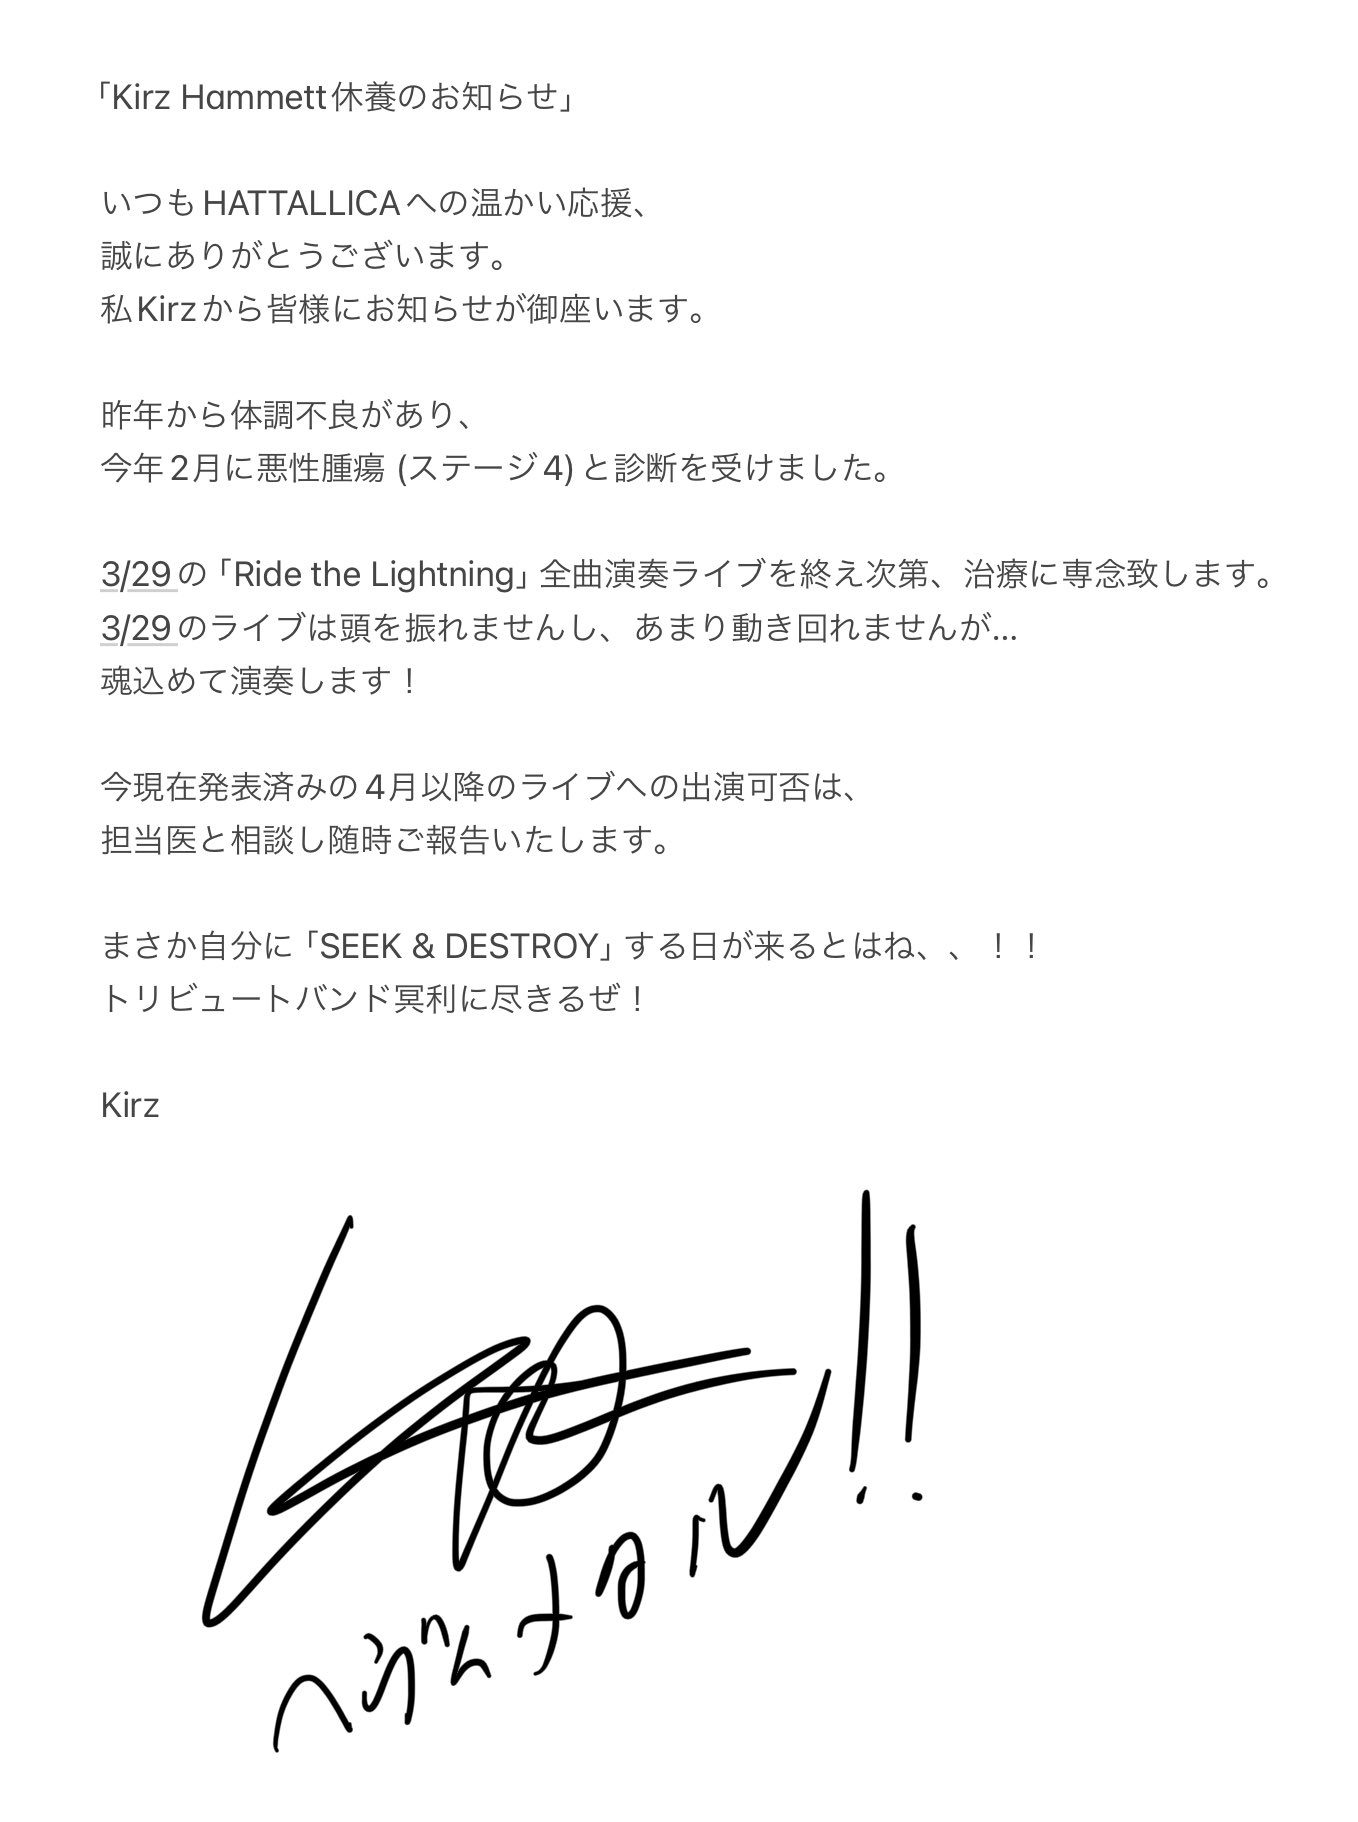 「Kirz Hammett休養のお知らせ」
いつもHATTALLICAへの温かい応援、
誠にありがとうございます。
私Kirzから皆様にお知らせが御座います。
昨年から体調不良があり、
今年2月に悪性腫瘍 (ステージ4) と診断を受けました。
3/29の「Ride the Lightning」全曲演奏ライブを終え次第、治療に専念致します。
3/29のライブは頭を振れませんし、あまり動き回れませんが...
魂込めて演奏します！
今現在発表済みの4月以降のライブへの出演可否は、
担当医と相談し随時ご報告いたします。
まさか自分に「SEEK & DESTROY」する日が来るとはね、、！！
トリビュートバンド冥利に尽きるぜ！
Kirz